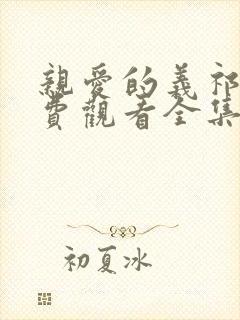 親愛的義祁
費觀看全集
初夏冰